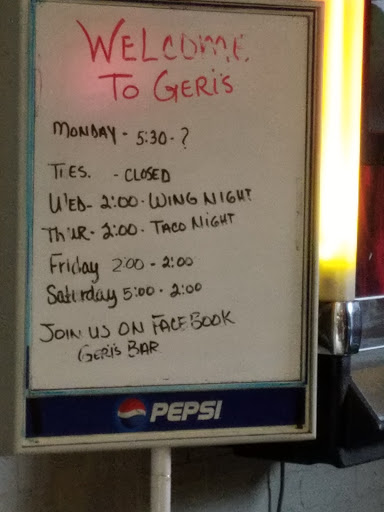 WELCOME
TO GERI'S
MONDAY - 5:30 - ?
TUES. - CLOSED
WED - 2:00 - WING NIGHT
THUR - 2:00 - TACO NIGHT
Friday 2:00 - 2:00
Saturday 5:00 - 2:00
JOIN US ON FACEBOOK
GERI'S BAR
PEPSI